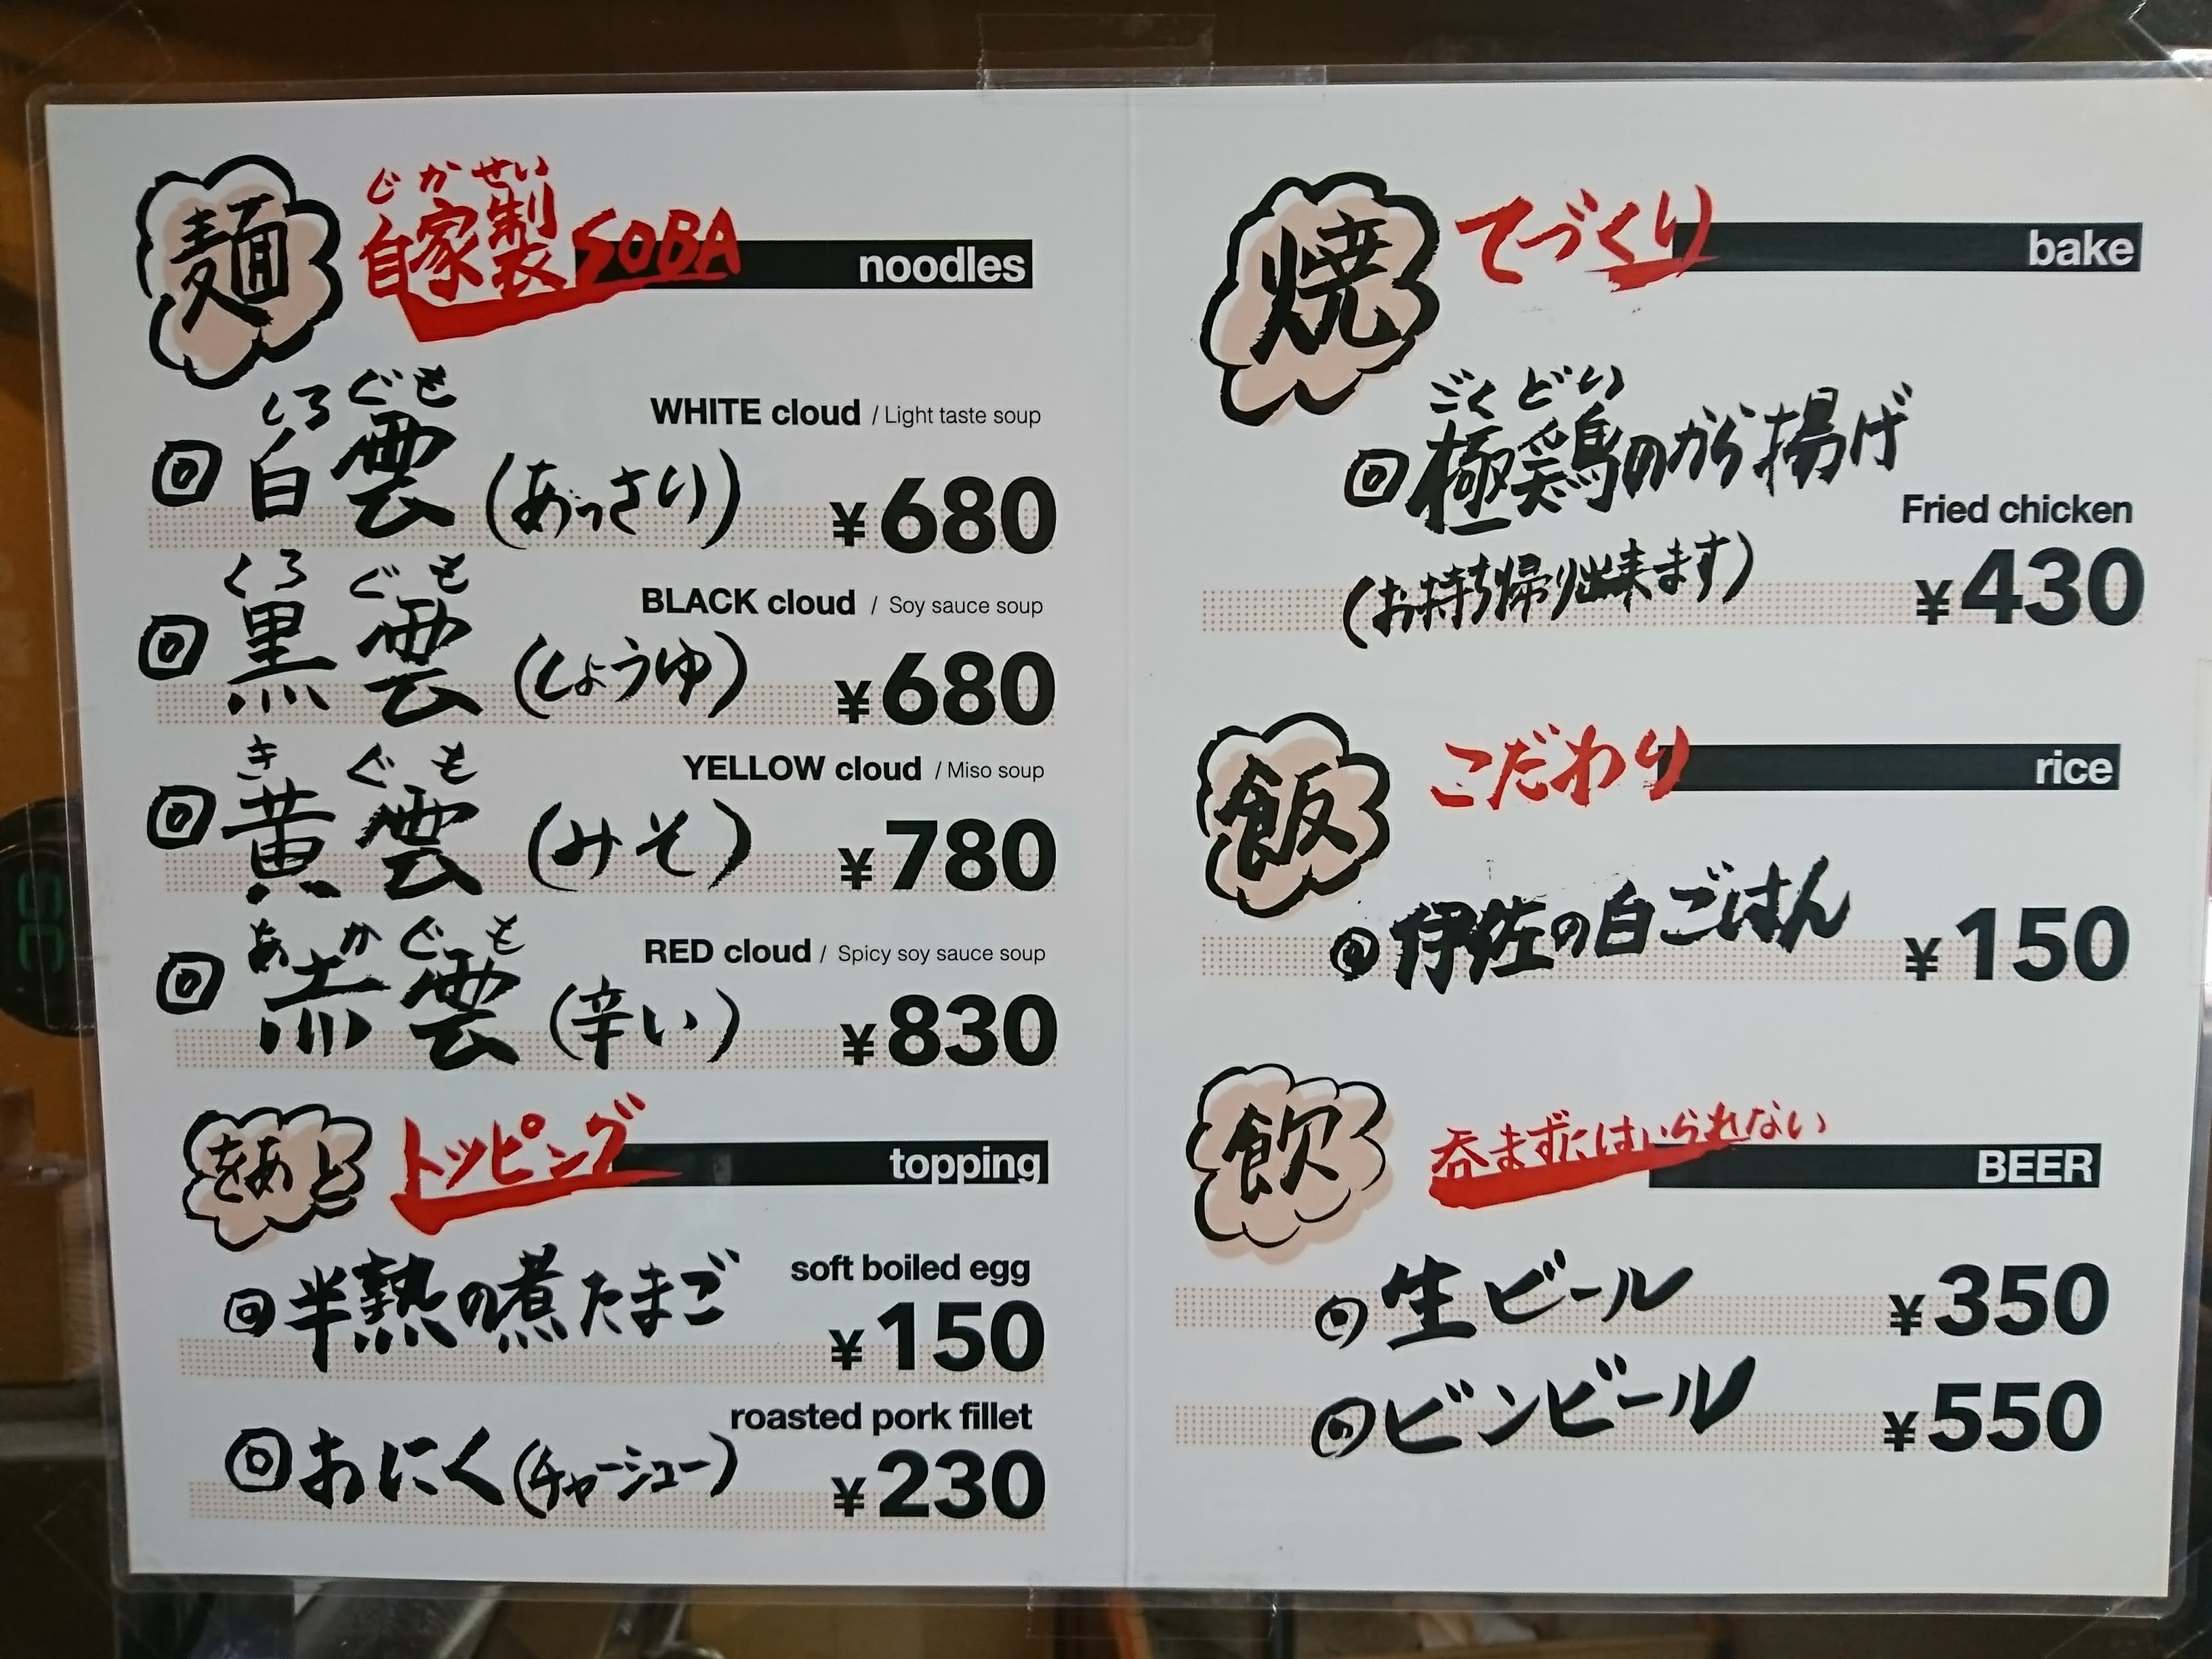 麺
じかせい
自家製SOBA
noodles
しろぐも
WHITE cloud / Light taste soup
白雲(あっさり) ¥680
くろぐも
BLACK cloud / Soy sauce soup
黒雲(しょうゆ) ¥680
きぐも
YELLOW cloud / Miso soup
黄雲(みそ) ¥780
あかぐも
RED cloud / Spicy soy sauce soup
赤雲(辛い) ¥830
トッピング
topping
半熟の煮たまご
soft boiled egg
¥150
roasted pork fillet
おにく(チャーシュー) ¥230
焼
てづくり
bake
ごくどい
極鶏のから揚げ
Fried chicken
(お持ち帰り出来ます) ¥430
飯
こだわり
rice
伊佐の白ごはん ¥150
飲
呑まずにはいられない
BEER
生ビール ¥350
ビンビール ¥550